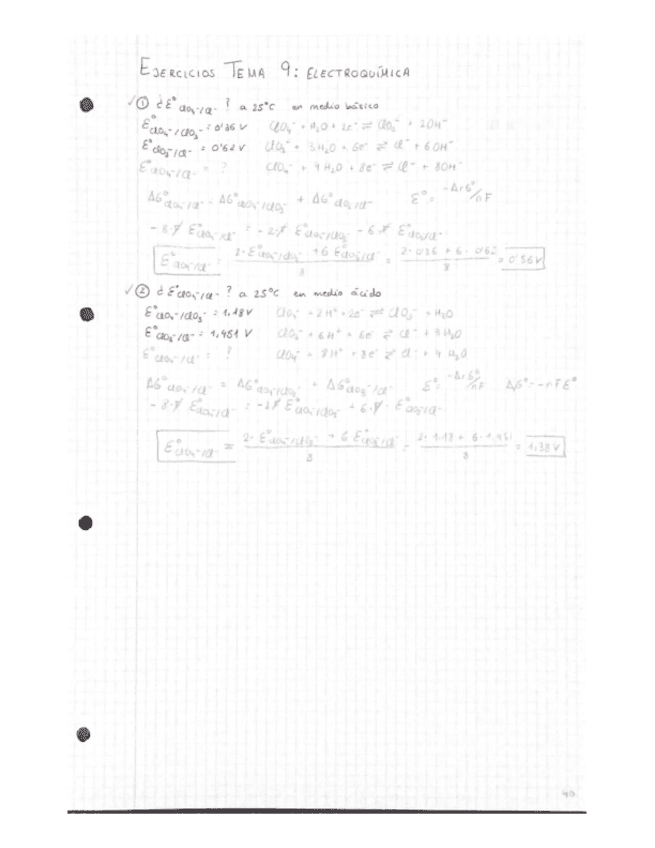 EJERCICIOS TEMA 9: ELECTROQUÍMICA
✓① ¿ E° ClO₄⁻/Cl⁻ ? a 25°C en medio básico
E° ClO₄⁻/ClO₃⁻ = 0'36 V ClO₄⁻ + H₂O + 2e⁻ ⇌ ClO₃⁻ + 2OH⁻
E° ClO₃⁻/Cl⁻ = 0'62 V ClO₃⁻ + 3H₂O + 6e⁻ ⇌ Cl⁻ + 6OH⁻
E° ClO₄⁻/Cl⁻ = ? ClO₄⁻ + 4H₂O + 8e⁻ ⇌ Cl⁻ + 8OH⁻
ΔG° ClO₄⁻/Cl⁻ = ΔG° ClO₄⁻/ClO₃⁻ + ΔG° ClO₃⁻/Cl⁻ E° = -ΔrG°/nF
-8·F E° ClO₄⁻/Cl⁻ = -2·F E° ClO₄⁻/ClO₃⁻ - 6·F E° ClO₃⁻/Cl⁻
E° ClO₄⁻/Cl⁻ = 2·E° ClO₄⁻/ClO₃⁻ + 6 E° ClO₃⁻/Cl⁻ / 8 = 2·0'36 + 6·0'62 / 8 = 0'56V
✓② ¿ E° ClO₄⁻/Cl⁻ ? a 25°C en medio ácido
E° ClO₄⁻/ClO₃⁻ = 1,18 V ClO₄⁻ + 2H⁺ + 2e⁻ ⇌ ClO₃⁻ + H₂O
E° ClO₃⁻/Cl⁻ = 1,451 V ClO₃⁻ + 6H⁺ + 6e⁻ ⇌ Cl⁻ + 3H₂O
E° ClO₄⁻/Cl⁻ = ? ClO₄⁻ + 8H⁺ + 8e⁻ ⇌ Cl⁻ + 4H₂O
ΔG° ClO₄⁻/Cl⁻ = ΔG° ClO₄⁻/ClO₃⁻ + ΔG° ClO₃⁻/Cl⁻ E° = -ΔrG°/nF ΔG° = -nFE°
-8·F E° ClO₄⁻/Cl⁻ = -2F E° ClO₄⁻/ClO₃⁻ + 6·F· E° ClO₃⁻/Cl⁻
E° ClO₄⁻/Cl⁻ = 2·E° ClO₄⁻/ClO₃⁻ + 6 E° ClO₃⁻/Cl⁻ / 8 = 2·1,18 + 6·1,451 / 8 = 1,38 V